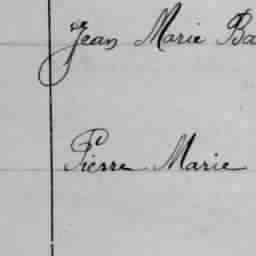 Jean Marie Ba
Pierre Marie